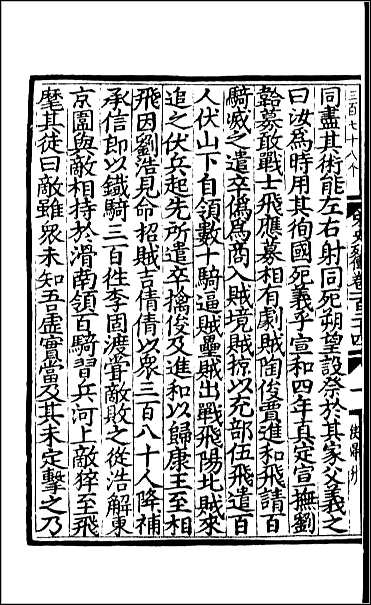 三百七十八个
同盡其術能左右射同死朔望設祭於其冢父義之
曰汝為時用其徇國死義乎宣和四年真定宣撫劉
韐募敢戰士飛應募相有劇賊陶俊賈進和飛請百
騎滅之遣卒偽為商入賊境賊掠以充部伍飛遣百
人伏山下自領數十騎逼賊壘賊出戰飛陽北賊來
追之伏兵起先所遣卒擒俊及進和以歸康王至相
飛因劉浩見命招賊吉倩倩以眾三百八十人降補
承信郎以鐵騎三百徃李固渡嘗敵敗之從浩解東
京圍與敵相持於滑南領百騎習兵河上敵猝至飛
麾其徒曰敵雖眾未知吾虛實當及其未定擊之乃